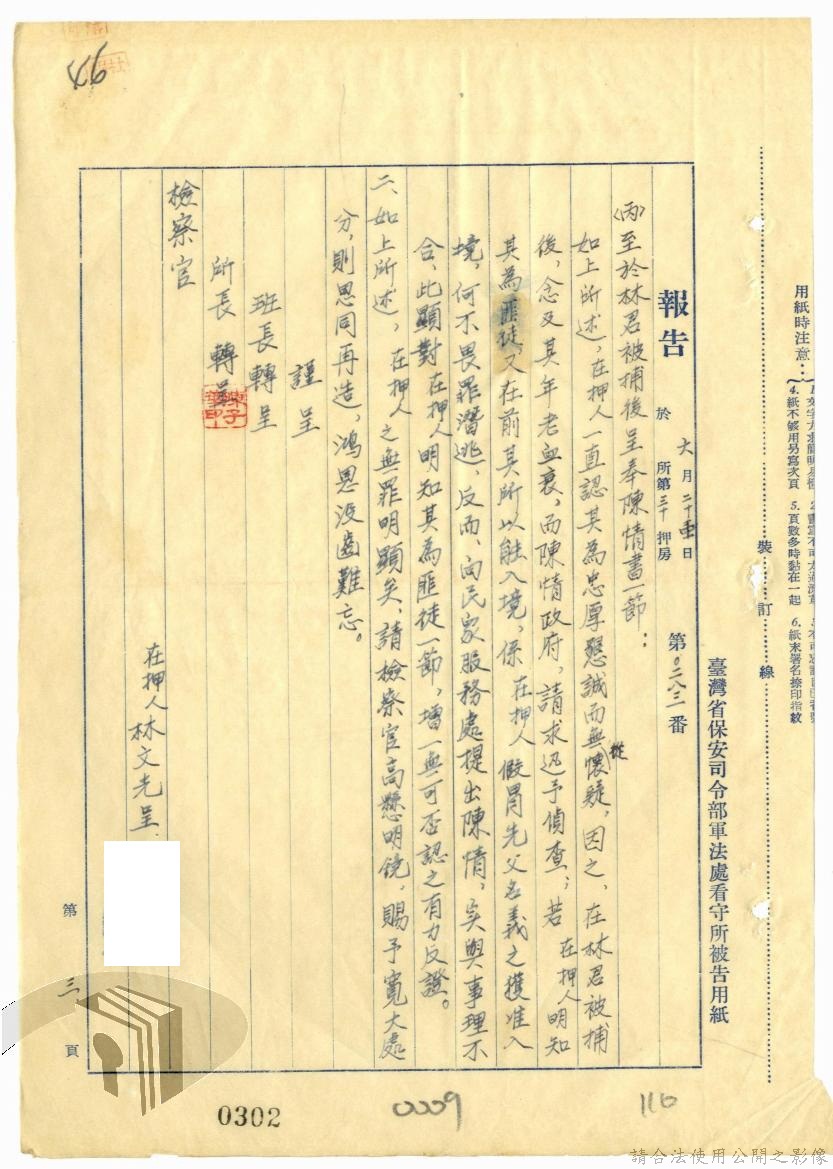 用紙時注意：
4.紙不够用另寫次頁
5.頁數多時黏在一起
6.紙末署名捺印指紋
裝訂線
臺灣省保安司令部軍法處看守所被告用紙
報告 於 六月二十五日 所第三十押房 第〇二八三番
(丙)至於林君被捕後呈奉陳情書一節：
如上所述，在押人一直認其為忠厚懇誠而無從懷疑，因之，在林君被捕
後，念及其年老血衰，而陳情政府，請求迅予偵查；若在押人明知
其為匪徒，又在前其所以能入境，係在押人假冒先父名義之獲准入
境，何不畏罪潛逃，反而，向民眾服務處提出陳情，実與事理不
合，此顯對在押人明知其為匪徒一節，增一無可否認之有力反證。
二、如上所述，在押人之無罪明顯矣，請檢察官高懸明镜，賜予寬大處
分，則恩同再造，鴻恩没齒難忘。
謹呈
班長轉呈
所長轉呈
檢察官
在押人林文光呈.
第三頁
46
0302
0009
116
請合法使用公開之影像